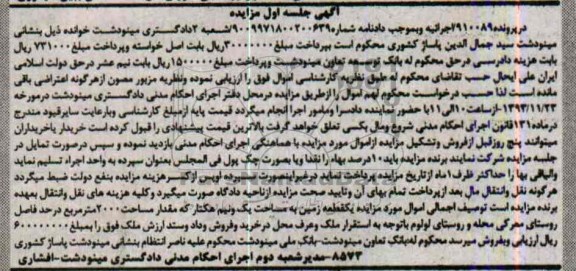 آگهی جلسه اول مزایده
در پرونده ۲۹۱۰۰۸۹ اجرائیه وبموجب دادنامه شماره ۹۰۰۹۹۷۱۸۰۰۲۰۰۶۳۹ /شعبه ۲دادگستری مینودشت خوانده ذیل بنشانی
مینودشت سید جمال الدین پاساژ کشوری محکوم است بپرداخت مبلغ ۳۰۰۰۰۰۰۰ ریال بابت اصل خواسته وپرداخت مبلغ ۷۳۱۰۰۰ ریال
بابت هزینه دادرسی درحق محکوم له بانک توسعه تعاون مینودشت وپرداخت مبلغ ۱۵۰۰۰۰۰ ریال بابت نیم عشر درحق دولت اسلامی
ایران علی ایحال حسب تقاضای محکوم له طبق نظریه کارشناسی اموال فوق را ارزیابی نموده ونظریه مزبور مصون ازهرگونه اعتراضی باقی
مانده است لذا حسب درخواست محکوم له اموال را ازطریق مزایده درمحل دفتر اجرای احکام مدنی دادگستری مینودشت درمورخه
۱۳۹۳/۱۱/۲۳ ازساعت ۱۰الی ۱۱با حضور نماینده دادسرا ومامور اجرا انجام میگردد قیمت پایه از مبلغ کارشناسی وبارعایت سایرقیود مندرج
درماده ۱۳۱ قانون اجرای احکام مدنی شروع ومال بکسی تعلق خواهد گرفت بالاترین قیمت پیشنهادی را قبول کرده است خریدار یاخریداران
میتوانند پنج روزقبل ازفروش وتشکیل مزایده ازاموال مورد مزایده با هماهنگی اجرای احکام مدنی بازدید نموده و سپس درصورت تمایل در
جلسه مزایده شرکت نمایند برنده مزایده باید ۱۰درصد بهاء را نقدا ویا بصورت چک پول فی المجلس بعنوان سپرده به واحد اجراء تسلیم نماید
والباقی بهاء را حداکثر ظرف ۱ماه ازتاریخ مزایده پرداخت نماید درغیراینصورت سپرده اوپس ازکسرهزینه مزایده بنفع دولت ضبط میگردد
هرگونه نقل وانتقال مال بعد ازپرداخت تمام بهای آن وتایید صحت مزایده ازناحیه دادگاه صورت میگیرد وکلیه هزینه های نقل وانتقال بعهده
برنده مزایده است توصیف اجمالی اموال مورد مزایده یکقطعه زمین به مساحت یک ونیم هکتار که مقدار مساحت ۲۰۰۰مترمربع درحد فاصل
روستای محرکی محله و روستای لولوم باتوجه به استقرار ملک وعرف محل درخرید وفروش وداد وستد ارزش ملک فوق را بمبلغ ۶۰۰۰۰۰۰۰
ریال ارزیابی وبفروش میرسد محکوم له بانک تعاون مینودشت-بانک ملی مینودشت محکوم علیه ناصر انتظام بنشانی مینودشت پاساژ کشوری
۸۵۷۳-مدیرشعبه دوم اجرای احکام مدنی دادگستری مینودشت-افشاری